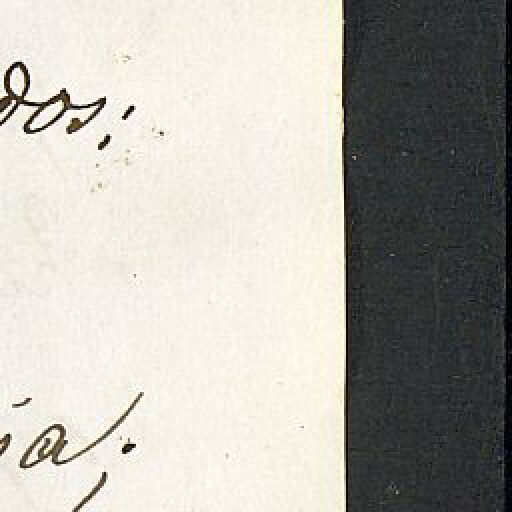 dos;
ia;